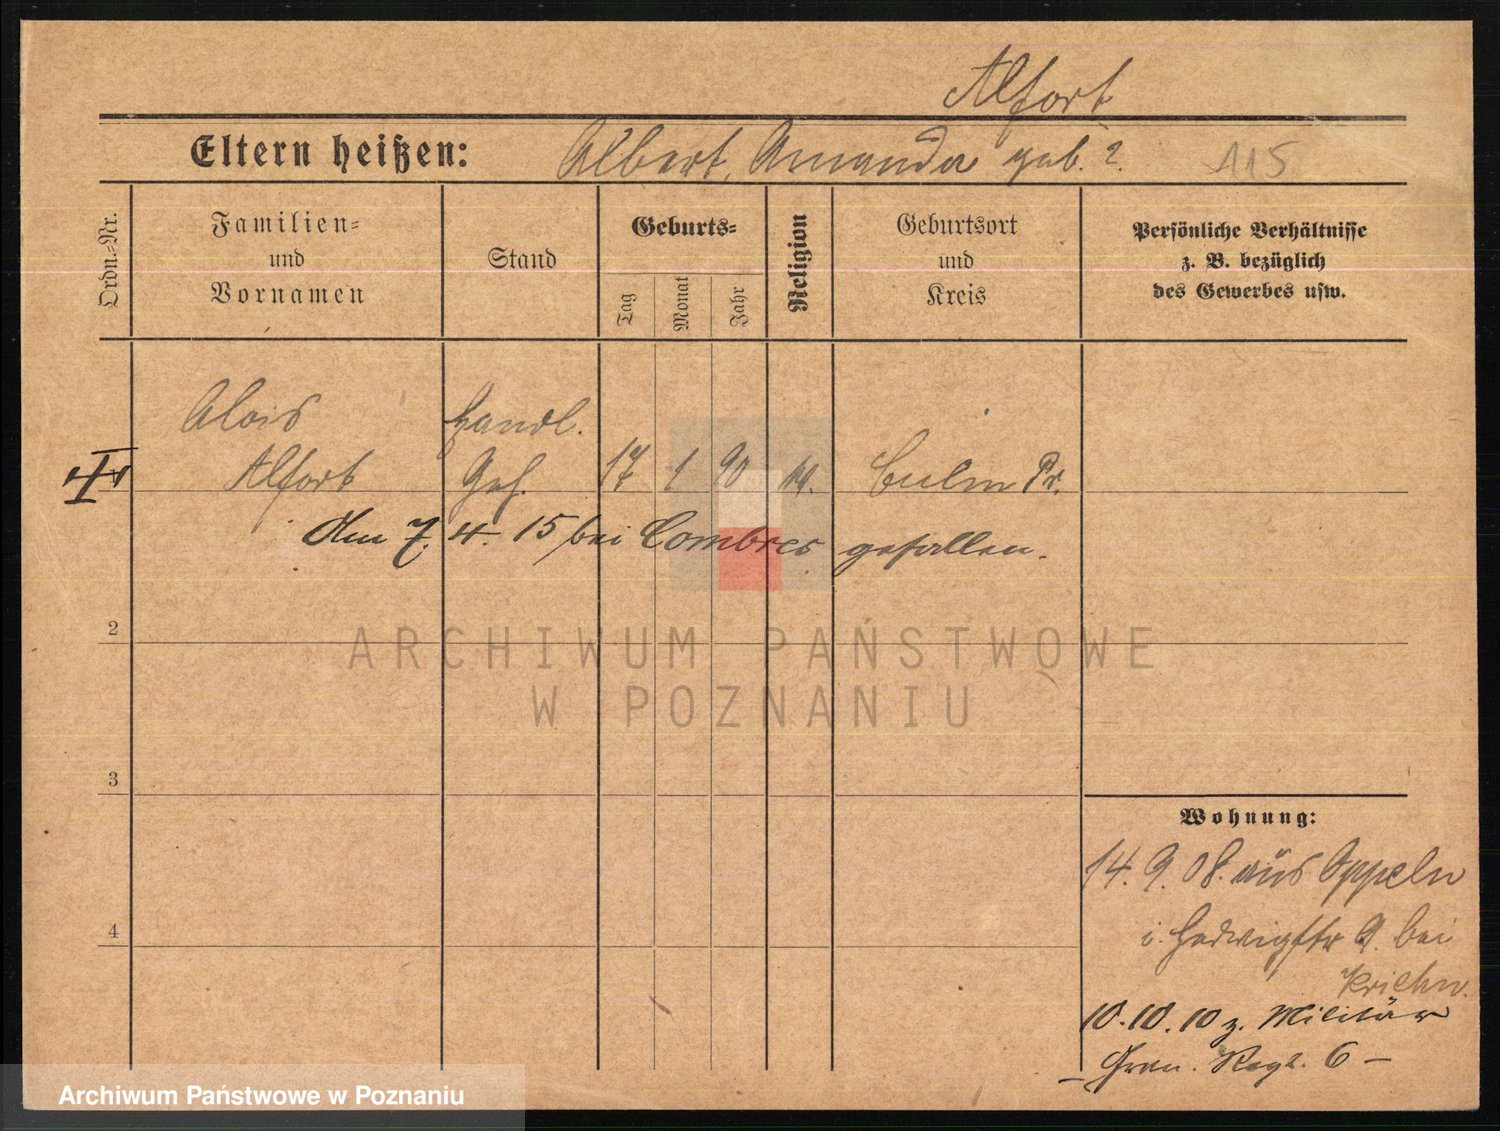 Alfort
Eltern heißen: Albert, Amanda geb. ? 115
Ordn.-Nr.
Familien-
und
Vornamen
Stand
Geburts-
Tag
Monat
Jahr
Religion
Geburtsort
und
Kreis
Persönliche Verhältnisse
z. B. bezüglich
des Gewerbes usw.
Alois Handl.
Alfort Geh. 17 1 90 Culm Pr.
Am 7. 4. 15 bei Combres gefallen.
2
3
4
Wohnung:
14. 9. 08. aus Oppeln
i. Hedwigstr 9. bei
10. 10. 10 z. Militär
– Gren. Regt. 6 –
ARCHIWUM PAŃSTWOWE
W POZNANIU
Archiwum Państwowe w Poznaniu